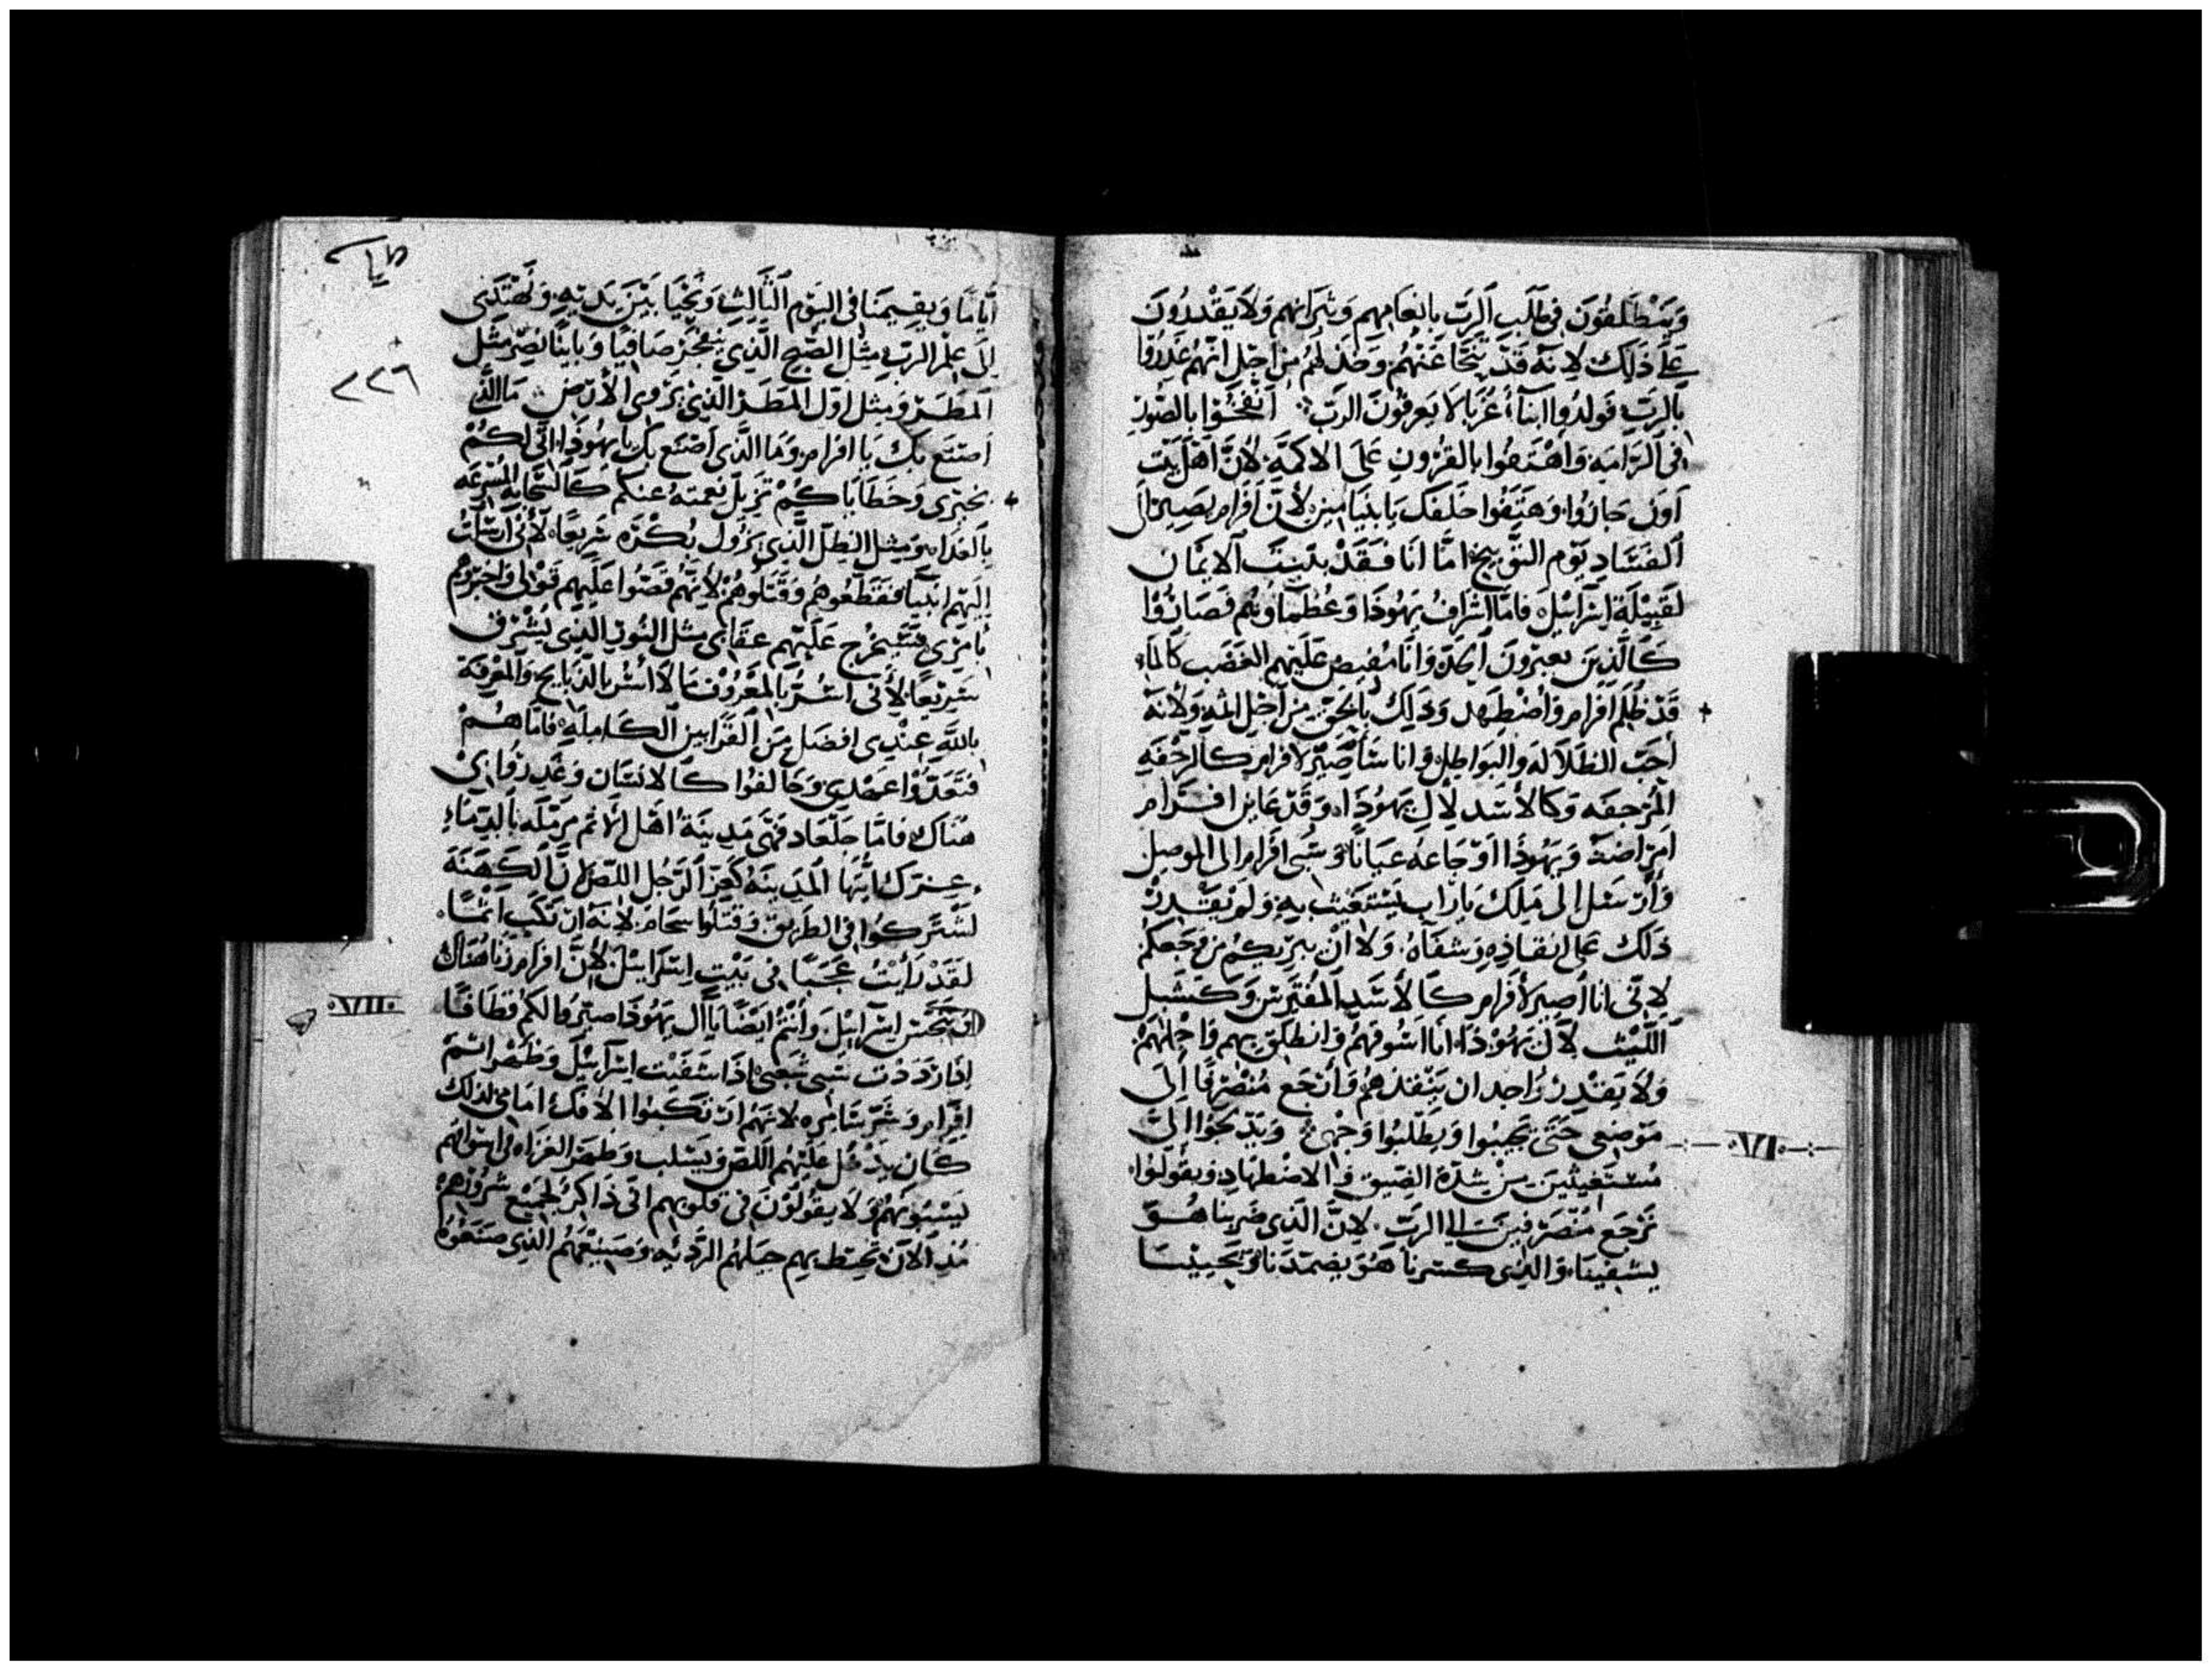 وَيَنْطَلِقُونَ فِي طَلَبِ الرَّبِّ بِانعَامِهِم وَثيرَانِهم وَلَا يَقْدِرُونَ
عَلَى ذَلِكَ لِانَّهُ قَدْ تَنَحَّا عَنْهُمْ وَخذلهُم مِن اَجْلِ انَّهُمْ غَدَرُوا
بِالرَّبِّ فَوَلَدُوا ابنَاءً غُرَبَا لَا يَعرِفُونَ الرَّبّ اَنْفُخُوا بِالصُّورِ
فِي الرَّامَةِ وَاَهْتِفُوا بِالقُرُونِ عَلَى الاكمَةِ لِأَنَّ اَهْلَ بَيْت
آوَن جَازُوا وَهَتَفُوا خَلفَكَ يَا بنيَامِين لِأَنَّ اَفْرَام يَصِيرُ الَى
الفَسَادِ يَوْم التَّوْبِيخ امَّا انَا فَقَدْ بَيَّنتُ الايمَان
لِقَبِيْلَةِ اِسْرَايِيْلَ فَامَّا اشْرَافُ يَهُوذَا وَعُظَمَاوهُم فَصَارُوْا
كَالَّذِينَ يغيرُونَ وَانَا مُفِيض عَلَيهِم الغَضَب كَالمَاءِ
قَدْ ظُلِمَ اَفرَام وَاضْطُهِد وَذَلِكَ بِالحَقِّ مِن اَجْلِ وَلِأَنَّهُ
اَحَبَّ الضَّلَالَة وَالبَوَاطِل وَانَا سَأصِيْرُ لافرَام كَالرَّجْفَةِ
المُرْجِفَه وَكَالأَسَد لِآلِ يَهُوذَا وَقَدْ عَايَن افْرَام
اَمرَاضهُ وَيَهُوذَا اَوْجَاعَهُ عَيَانًا وَسُبى اَفرَام الى المَوصِل
وَأَرْسَل الى مَلِك يَارَاب يَسْتَغِيث بِهِ وَلَمْ يَقْدِرْ
ذَلك عَلى انقَاذِهِ وَشفَاهُ وَلَا اَنْ يبريكُم مِن وَجَعكُمْ
لِانِّى انَا اَصِير لأفرَام كَالأَسَدِ المُفْتَرِس وَكَشِبْل
اللَّيْثِ لآل يَهُوْذَا انَا اسُوقهُمْ وَانطَلِق بِهِم وَاحمِلُهُمْ
وَلَا يَقدِرُ وَاحِد ان يَنْقذهُمْ وَأرْجَع مُنْصَرِفًا الَى
مَوْضِعى حَتَّى يجيبُوا وَيَطْلُبُوا وَجْهِىْ وَيَدَّلجُوا اليَّ
مُستَغِيثِينَ مِنْ شِدَّة الضِّيق وَالاضْطِهَادِ وَيَقُولُوا
نَرْجَع مُنْصَرِفِينَ الى الرَّبِّ لِأَنَّ الَّذِى ضَرَبنَا هُوَ
يَشفينَا وَالَّذِى كَسَرنَا هُوَ يضمدنَا وَيُحْيِيْنَا
٠٧١٠
طيا
٢٢٦
أَيَّامًا وَيُقِيمنَا فى اليَوْم الثَّالِثِ وَنَحْيَا بَيْنَ يَدَيْهِ وَنَهْتَدِى
الَى عِلْم الرَّبِّ مِثْل الصُّبْح الَّذِي ينفجِرُ صَافيًا وَيَأتِينَا مِثْل
المَطَر وَمِثْل اوّل المَطَر الَّذِى يُرْوِى الأَرض مَا الَّذِى
اَصْنَع بِكَ يَا افرَام وَمَا الَّذِى اَصْنَع بِكَ يَا يَهُوذَا
وَخَطَايَاكُمْ تُزِيلُ نِعمَتَهُ عَنكُم كَالسَّحَابَةِ المُسْرِعَه
بِالغَدَاه وَمِثل الظِّلّ الَّذِى يَزُول بُكْرَه سَرِيعًا لأنِّى اَرسَلتُ
اِلَيْهِم انْبِيَا فَقَطَعُوهم وَقَتَلُوهُمْ لِأَنَّهُمْ قَصُّوا عَلَيهِم قَوْلى وَاخبَرُوهُم
بِأَمْرِى فَسَيَخرُج عَلَيْهِم عِقَابى مِثل النُّورِ الَّذِى يُشْرِق
سَرِيْعًا لِأَنِّى اُسَرُّ بِالمَعْرُوف مَا لا اُسَرّ بالذَّبَايح وَالمَعْرِفَة
بِاللهِ عِنْدِى افضَل مِن القَرَابِين الكَامِلَةِ فَامَّا هُمْ
فَتَعَدَّوْا عَهْدِى وَخَالَفُوا كَالانسَان وَغَدَرُوا بِىْ
هُنَاك فَامَّا جَلعَاد فَهِيَ مَدِينَةُ اهْل الإثم مُرَمَّلَه بالدِّمَاءِ
عِزّك اَيَّتُهَا المَدِينَة كَعِزِّ الرَّجُل اللِّصّ لِأنَّ الكَهَنَةَ
اشْتَرَكُوا فى الطَّرِيق وَقَتلُوا سجَام لِانَّهُ ارتكَب اثمًا
لَقَدْ رَأَيْتُ عَجَبًا فى بَيْتِ اسْرَايِيْلَ لِأَنَّ افرَام زَنَا هُنَاكَ
وَتَنَجَّسَ اسْرَايِيْل وَانْتُمْ ايْضًا يَا آل يَهُوذَا صَيِّرُوا لكم قطَافًا
اِذَا رَدَدْت سَبى شَعبِىْ اِذَا شَفَيْت اسْرَايِيْل وَظَهَر اثم
افرَام وَشَرّ سَامِرَه لِانَّهُم ارْتَكَبُوا الافك امَامِى لِذَلِكَ
كَان يَدْخُل عَلَيْهِم اللِّصّ وَيَسْلب وَظَهَرَ الغُزَاة فى اسْوَاقهم
يَسْبُوْنهُمْ وَلَا يَقُوْلُوْنَ فى قُلُوبِهِم انِّى ذَاكِرٌ لِجَمِيْع شُرُوْرِهِمْ
مُنذ الآن تحيط بِهِم حِيَلهُم الرَّدِيئَهِ وَصَنِيعُهُم الَّذِى صَنَعُوْهُ
٠٧١١٠